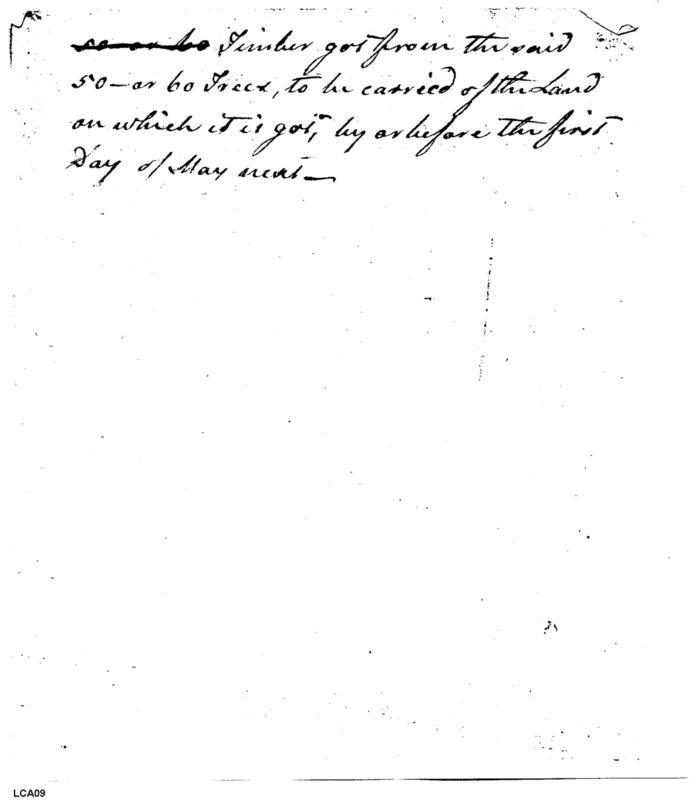 50 or 60 Timber got from the said
50 - or 60 Trees, to be carried of the Land
on which it is got, by or before the first
Day of May next -
LCA09